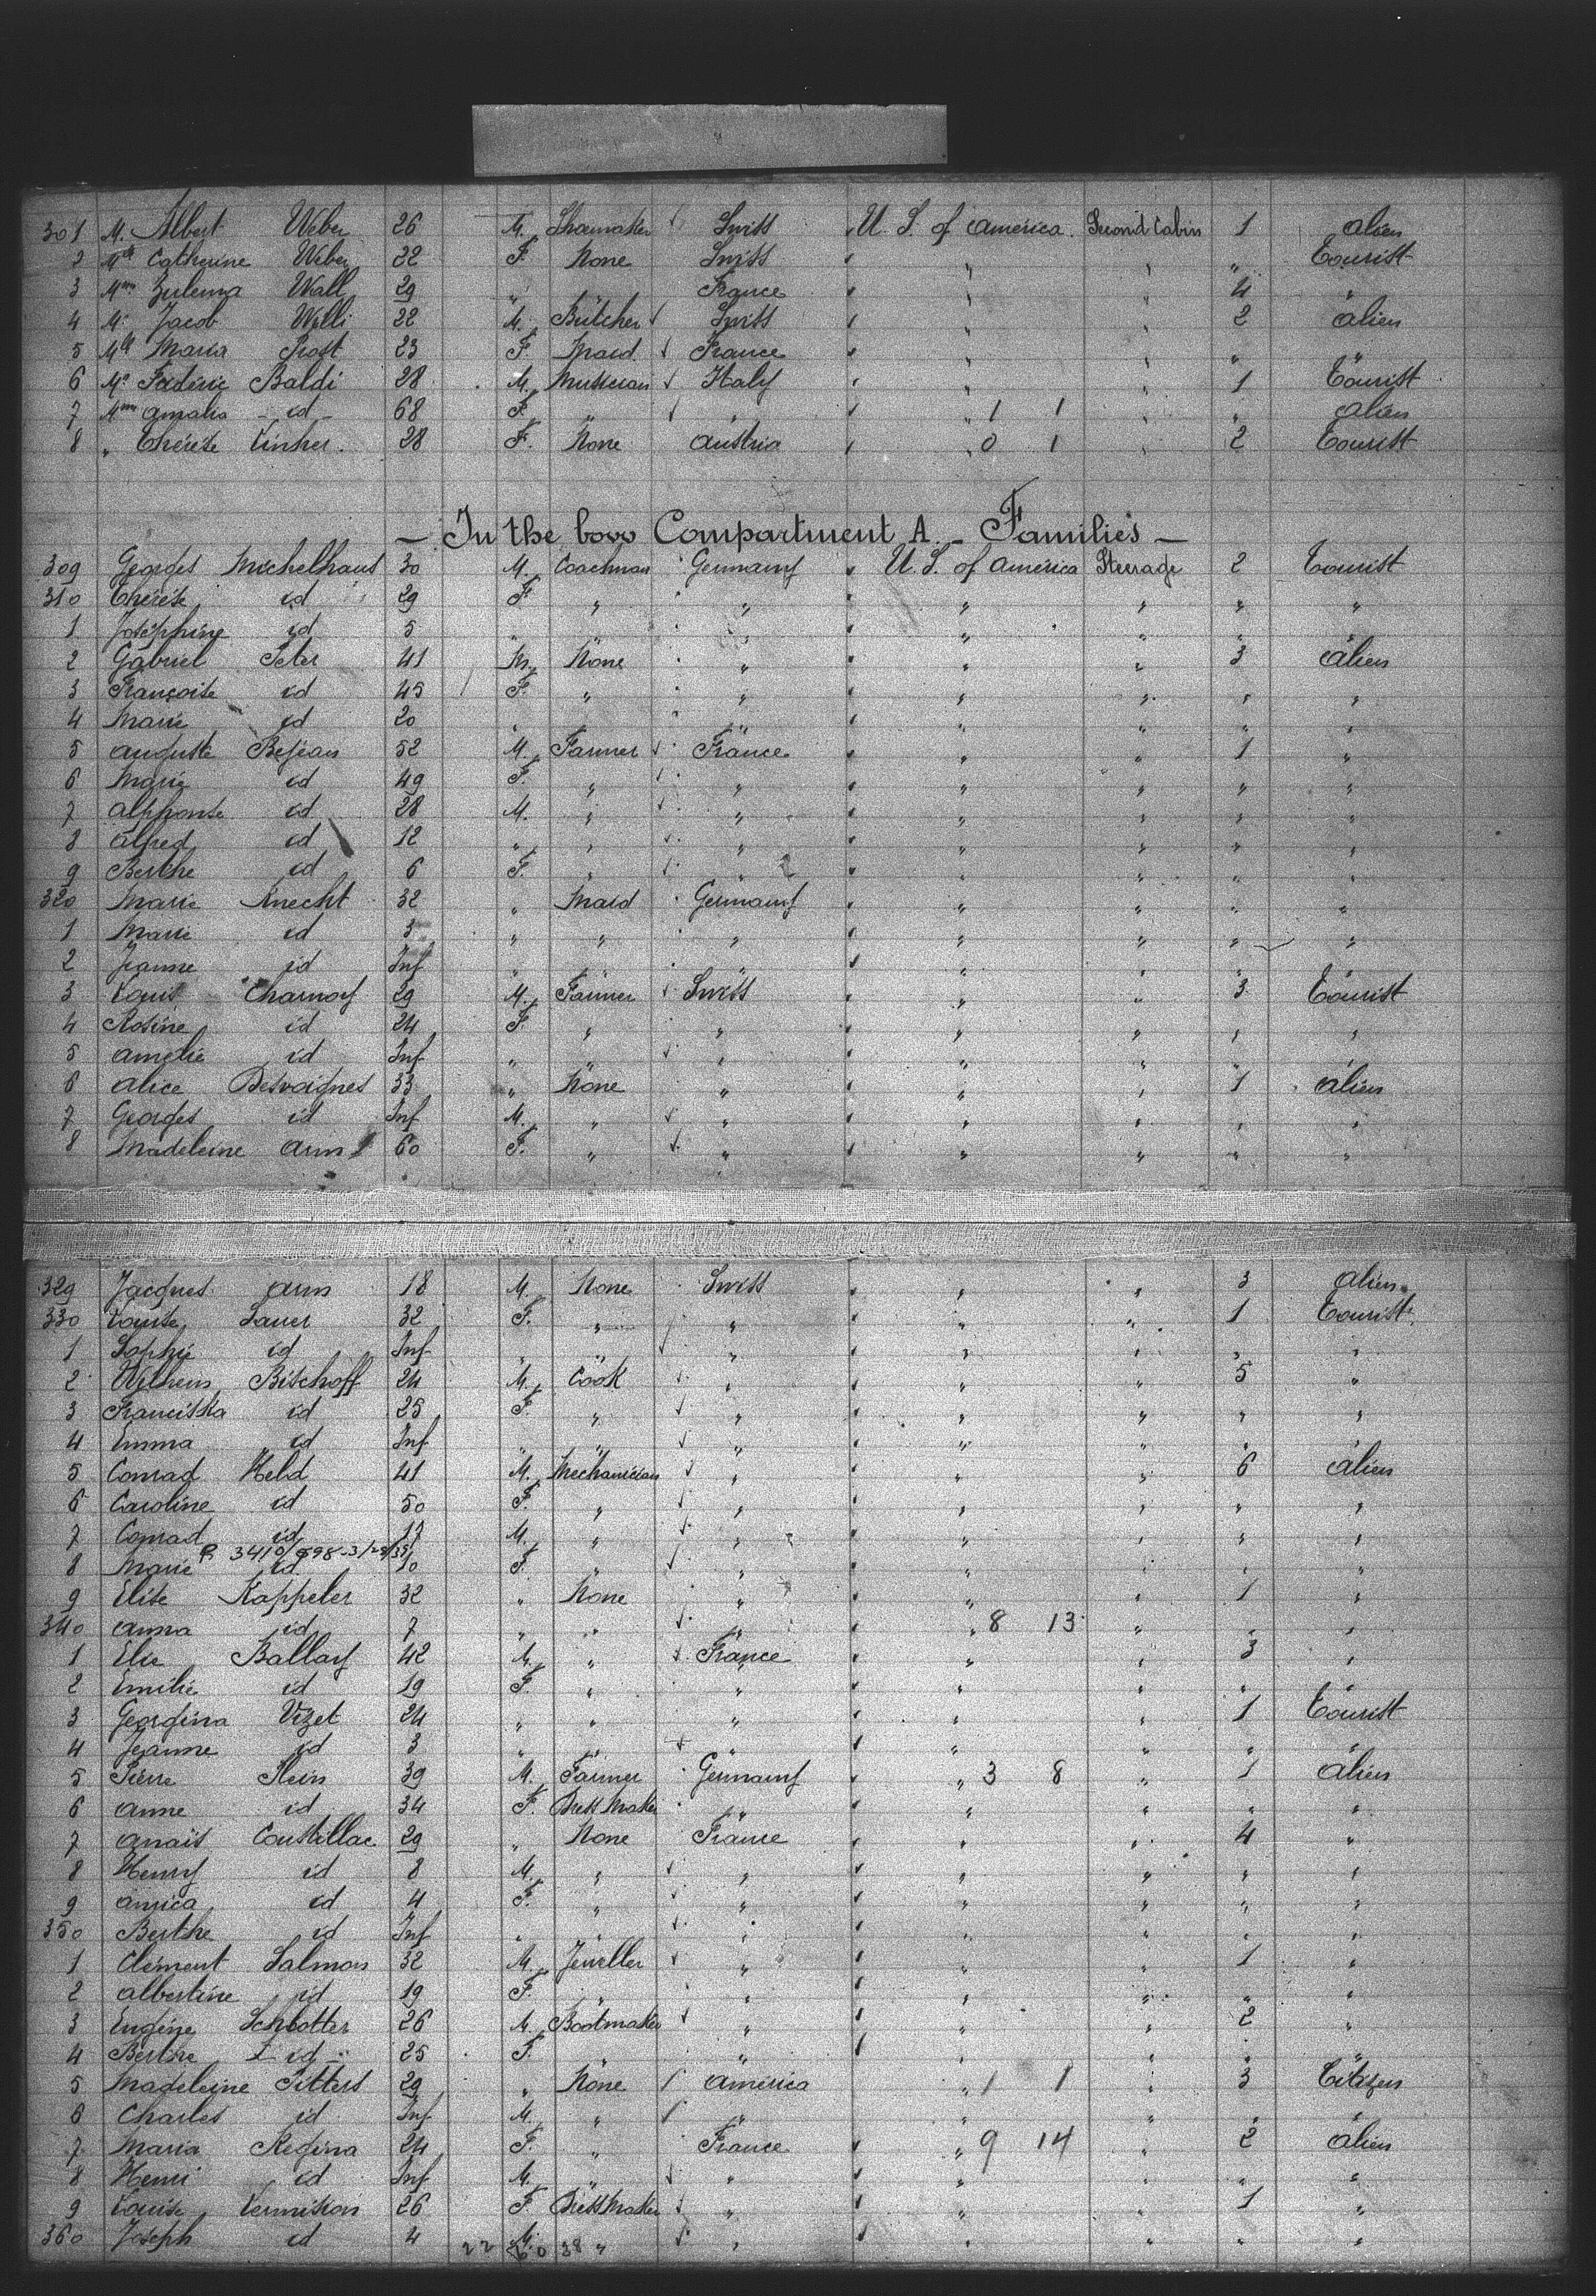 301 M. Albert Weber 26 M. Shoemaker Swiss U. S. of america. Second Cabin 1 alien
2 Mlle Catherine Weber 22 F. None Swiss " " " Tourist
3 Mme Zulema Wall 29 " " France " " 4 "
4 M. Jacob Willi 22 M. Butcher Swiss " " 2 alien
5 Mlle Maria Prost 23 F. Maid France " " " "
6 Mr Fréderic Baldi 28 M. Musician Italy " " 1 Tourist
7 Mme amalia - id - 68 F. " " " 1 1 " " alien
8 " Thérèse 28 F. None austria " 0 1 " 2 Tourist
- In the bow Compartment A. - Families -
309 Georges Michelhaus 30 M. Coachman Germany U. S. of america Steerage 2 Tourist
310 Thérèse id 29 F. " " " " " "
1 Joséphine id 5 " " " " " " "
2 Gabriel Peter 41 M. None " " " 3 alien
3 Françoise id 45 F. " " " " " "
4 Marie id 20 " " " " " " "
5 auguste Bejean 52 M. Farmer France " " 1 "
6 Marie id 49 F. " " " " " "
7 alphonse id 28 M. " " " " " "
8 alfred id 12 " " " " " " "
9 Berthe id 6 F. " " " " " "
320 Marie Knecht 32 " Maid Germany " " " "
1 Marie id 3 " " " " " " "
2 Jeanne id Inf " " " " " " "
3 Louis Charnoy 29 M. Farmer Swiss " " 3 Tourist
4 Rosine id 24 F. " " " " " "
5 amélie id Inf " " " " " " "
6 alice Desvoignes 33 " None " " " 1 alien
7 Georges id Inf M. " " " " " "
8 Madeleine arm 60 F. " " " " " "
329 Jacques arm 18 M. None Swiss " " 3 alien
330 Louise Sauer 32 F. " " " " 1 Tourist
1 Sophie id Inf " " " " " " "
2 Wilhem Bischoff 24 M. Cook " " " 5 "
3 Franciska id 25 F. " " " " " "
4 Emma id Inf " " " " " " "
5 Conrad Held 41 M. Mechanician " " " 6 alien
6 Caroline id 50 F. " " " " " "
7 Conrad id 17 M. " " " " " "
8 Marie id 10 F. " " " " " "
9 Elise Kappeler 32 " None " " " 1 "
340 anna id 7 " " " " 8 13 " " "
1 Elie Ballay 42 M. " France " " 3 "
2 Emilie id 19 F. " " " " " "
3 Georgina Vizet 24 " " " " " 1 Tourist
4 Jeanne id 3 " " " " " " "
5 Pierre Klein 39 M. Farmer Germany " 3 8 " 1 alien
6 anne id 34 F. Dress Maker " " " " "
7 anaïs Coustillac 29 " None France " " 4 "
8 Henry id 8 M. " " " " " "
9 amica id 4 F. " " " " " "
350 Berthe id Inf " " " " " " "
1 Clément Salmon 32 M. Jeweller " " " 1 "
2 albertine id 19 F. " " " " " "
3 Eugène Schlotter 26 M. Bootmaker " " " 2 "
4 Berthe - id - 25 F. " " " " " "
5 Madeleine Pitters 29 " None america " 1 1 " 3 Citizen
6 Charles id Inf M. " " " " " "
7 Maria Regina 24 F. " France " 9 14 " 2 alien
8 Henri id Inf M. " " " " " "
9 Louise 26 F. DressMaker " " " 1 "
360 Joseph id 4 M. " " " " " "
22 60 38